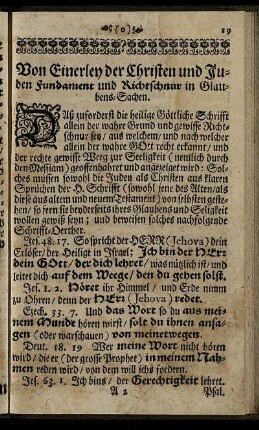 (o) 19
Von Einerley der Christen und Ju-
den Fundament und Richtschnur in Glau-
bens-Sachen.
DAß zuforderst die heilige Göttliche Schrifft
allein der wahre Grund und gewisse Richt-
schnur sey/ aus welchem und nach welcher
allein der wahre GOtt recht erkannt/ und
der rechte gewisse Weeg zur Seeligkeit (nemlich durch
den Messiam) geoffenbahret und angezeiget wird: Sol-
ches müssen sowohl die Juden als Christen aus klaren
Sprüchen der H. Schrifft (sowohl jene des Alten/ als
diese aus altem und neuem Testament) von selbsten geste-
hen/ so fern sie beyderseits ihres Glaubens und Seligkeit
wollen gewiß seyn; und beweisen solches nachfolgende
Schrifft-Oerther.
Jes. 48. 17. So spricht der HERR (Jehova) dein
Erlöser/ der Heilige in Israel: Ich bin der HErr
dein Gott/ der dich lehret/ was nützlich ist/ und
leitet dich auf dem Weege/ den du gehen solst.
Jes. 1. 2. Höret ihr Himmel/ und Erde nimm
zu Ohren/ denn der HErr (Jehova) redet.
Ezech. 33. 7. Und das Wort so du aus mei-
nem Munde hören wirst/ solt du ihnen ansa-
gen (oder warschauen) von meinetwegen.
Deut. 18. 19 Wer meine Wort nicht hören
wird/ die er (der grosse Prophet) in meinem Nah-
men reden wird/ von dem will ichs fordern.
Jes. 63. 1. Ich bins/ der Gerechtigkeit lehret.
A 2 Psal.